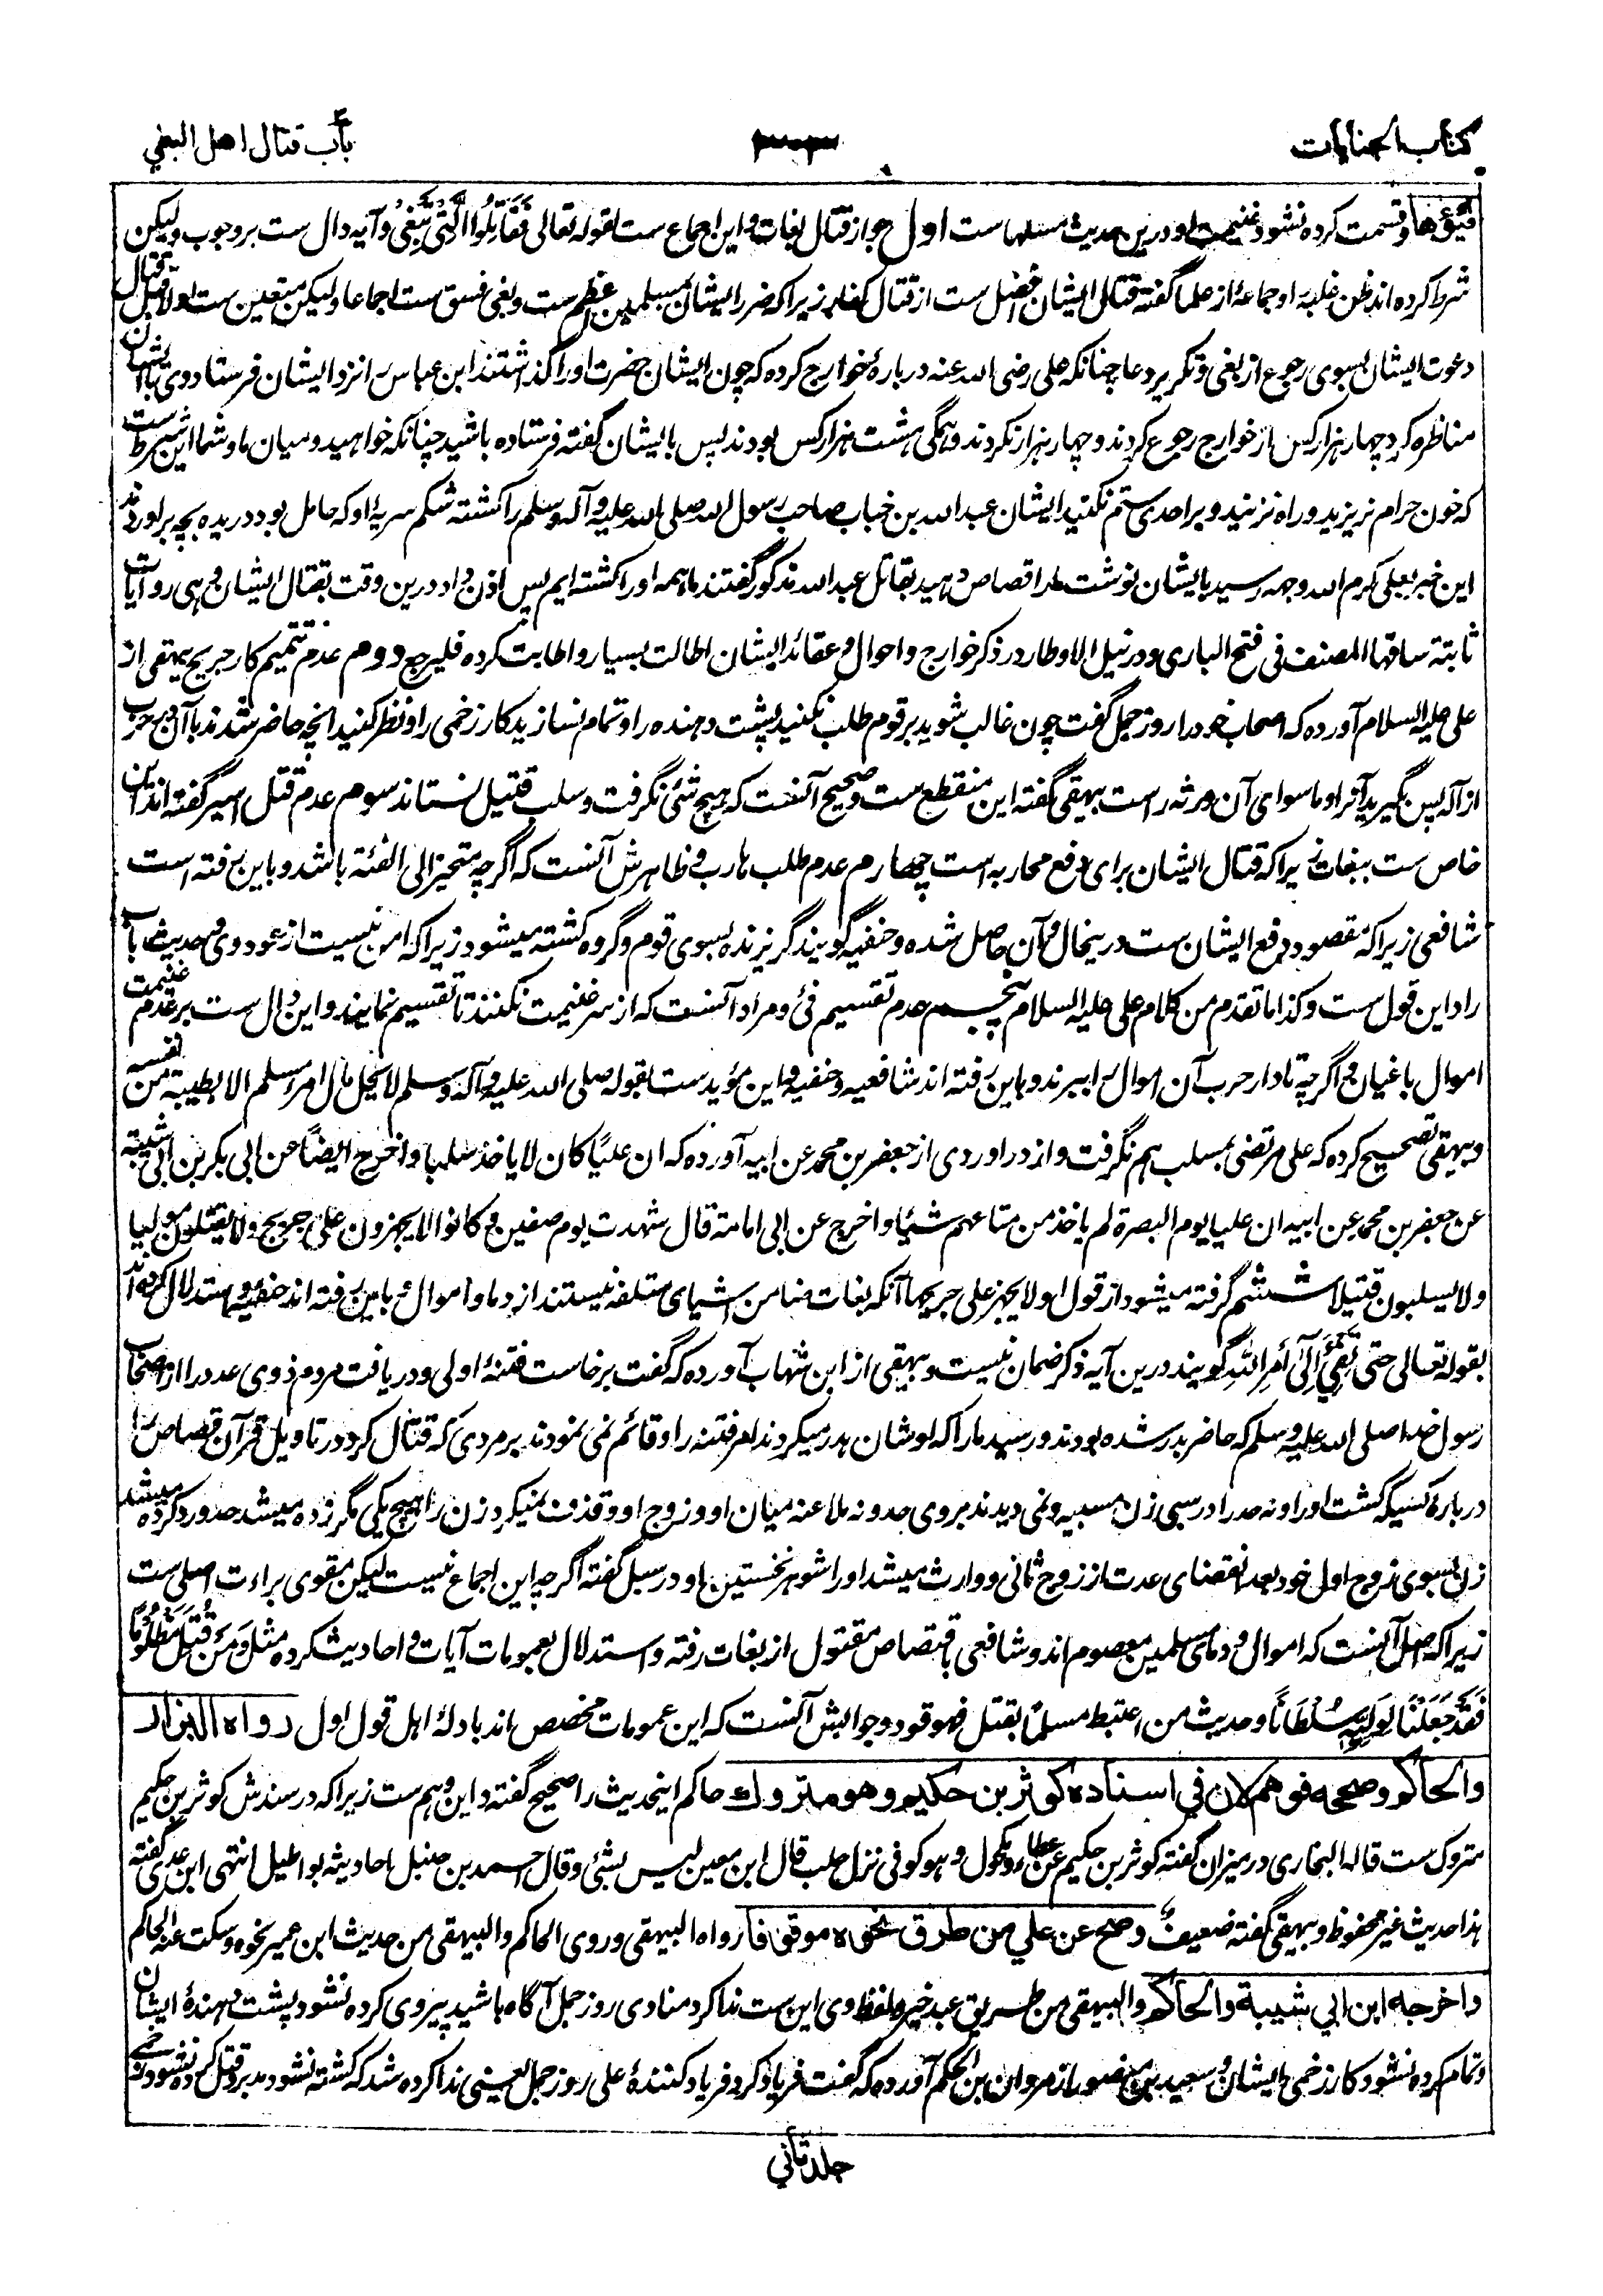 كتاب الجنايات
باب قتال اهل البغي
فيئوها وقسمت کرده نشود غنیمت او درین حدیث مسلهاست اول جواز قتال بغات واین اجماع ست لقوله تعالی فَقَاتِلُوا الَّتِيْ تَبْغِيْ وآیه دال ست بر وجوب ولیکن
شرط کرده اند ظن غلبه او جماعهٔ از علما گفته قتال ایشان افضل ست از قتال کفار زیراکه ضرر ایشان بمسلمین اعظم ست وبغی فسق ست اجماعا ولیکن متعین ست اولا قبل قتال
دعوت ایشان بسوی رجوع از بغی وتکریر دعا چنانکه علی رضی الله عنه دربارهٔ خوارج کرده که چون ایشان حضرت اورا گذاشتند ابن عباس را نزد ایشان فرستاد وی باایشان
مناظره کرد چهار هزار کس از خوارج رجوع کردند وچهار هزار نکردند وهمگی هشت هزار کس بودند پس باایشان گفته فرستاده باشید چنانکه خواهید ومیان ما وشما این شرط ست
که خون حرام نریزید وراه نزنید وبر احدی ستم نکنید ایشان عبدالله بن خباب صاحب رسول الله صلی الله علیه وآله وسلم را کشته شکم سریهٔ او که حامل بود دریده بچه برآوردند
این خبر بعلی کرم الله وجهه رسید بایشان نوشت مارا قصاص دهید بقاتل عبدالله مذکور گفتند ما همه اورا کشته ایم پس اذن داد درین وقت بقتال ایشان وهی روایات
ثابتة ساقها المصنف فی فتح الباری ودر نیل الاوطار در ذکر خوارج واحوال وعقائد ایشان اطالت بسیار واطابت کرده فلیرجع دوم عدم تتمیم کار جریح بیهقی از
علی علیه السلام آورده که اصحاب خودرا روز جمل گفت چون غالب شوید بر قوم طلب نکنید پشت دهنده را وتمام نسازید کار زخمی را ونظر کنید انچه حاضر شدند بآن در حرب
از آله پس بگیرید آنرا وماسوای آن ورثه راست بیهقی گفته این منقطع ست وصحیح آنست که هیچ شئی نگرفت وسلب قتیل نستاند سوم عدم قتل اسیر گفته اند این
خاص ست ببغات زیراکه قتال ایشان برای دفع محاربه است چهارم عدم طلب هارب وظاهرش آنست که اگرچه متحیز الی الفئة باشد وباین رفته است
شافعی زیراکه مقصود دفع ایشان ست درینحال وآن حاصل شده وحنفیه گویند گریزنده بسوی قوم وگروه کشته میشود زیراکه امن نیست از عود وی وحدیث باب
راد این قول ست وکذا ما تقدم من کلام علی علیه السلام پنجم عدم تقسیم فیٔ ومراد آنست که از سر غنیمت نکنند تا تقسیم نمایند واین دال ست بر عدم غنیمت
اموال باغیان واگرچه تا دار حرب آن اموال را ببرند وباین رفته اند شافعیه وحنفیه واین مؤید ست بقوله صلی الله علیه وآله وسلم لا یحل مال امرء مسلم الا بطیبة من نفسه
وبیهقی تصحیح کرده که علی مرتضی بسلب هم نگرفت واز دراوردی از جعفر بن محمد عن ابیه آورده که ان علیًا کان لا یاخذ سلبا واخرج ایضًا عن ابی بکر بن ابی شیبة
عن جعفر بن محمد عن ابیه ان علیا یوم البصرة لم یاخذ من متاعهم شیئا واخرج عن ابی امامة قال شهدت یوم صفین وکانوا لا یجهزون علی جریح ولا یقتلون مولیا
ولا یسلبون قتیلا ششم گرفته میشود از قول او لا یجهز علی جریحها آنکه بغات ضامن اشیای متلفه نیستند از دما واموال وباین رفته اند حنفیه واستدلال کرده اند
بقوله تعالی حتی تَفِیْٓءَ اِلٰٓی اَمْرِ اللهِ گویند درین آیه ذکر ضمان نیست وبیهقی از ابن شهاب آورده که گفت برخاست فتنهٔ اولی ودریافت مردم ذوی عدد را از اصحاب
رسول خدا صلی الله علیه وسلم که حاضر بدر شده بودند ورسید مارا که اوشان هدر میکردند امر فتنه را وقائم نمی نمودند بر مردی که قتال کرد در تاویل قرآن قصاص را
دربارهٔ کسیکه کشت اورا ونه حد را در سبی زن مسبیه ونمی دیدند بروی حد ونه ملاعنه میان او وزوج او وقذف نمیکرد زن را هیچ یکی مگر زده میشد حد ورد کرده میشد
زن بسوی زوج اول خود بعد انقضای عدت از زوج ثانی ووارث میشد اورا شوهر نخستین او ودر سبل گفته اگرچه این اجماع نیست لیکن مقوی براءت اصلی ست
زیراکه اصل آنست که اموال ودمای مسلمین معصوم اند وشافعی باقتصاص مقتول از بغات رفته واستدلال بعمومات آیات واحادیث کرده مثل وَمَنْ قُتِلَ مَظْلُوْمًا
فَقَدْ جَعَلْنَا لِوَلِیِّهٖ سُلْطَانًا وحدیث من اعتبط مسلمًا بقتل فهو قود وجوابش آنست که این عمومات مخصص اند بادلهٔ اهل قول اول رواه البزار
والحاكم وصححه فوهم لان في اسناده كوثر بن حكيم وهو متروك حاکم اینحدیث را صحیح گفته واین وهم ست زیراکه در سندش کوثر بن حکیم
متروک ست قاله البخاری ودر میزان گفته کوثر بن حکیم عن عطاء ومکحول وهو کوفی نزل حلب قال ابن معین لیس بشئی وقال احمد بن حنبل احادیثه بواطیل انتهی ابن عدی گفته
هذا حدیث غیر محفوظ وبیهقی گفته ضعیفٌ وصح عن علي من طرق نحوه موقوفا رواه البیهقی وروی الحاکم والبیهقی من حدیث ابن عمر نحوه وسکت عنه الحاکم
واخرجه ابن ابي شيبة والحاكم والبیهقی من طریق عبد خیر ولفظ وی این ست ندا کرد منادی روز جمل آگاه باشید پیروی کرده نشود پشت دهندهٔ ایشان
وتمام کرده نشود کار زخمی ایشان وسعید بن منصور از مروان بن الحکم آورده که گفت فریاد کرد فریاد کنندهٔ علی روز جمل یعنی ندا کرده شد که کشته نشود مدبر وقتل کرده نشود زخمی
جلد ثاني